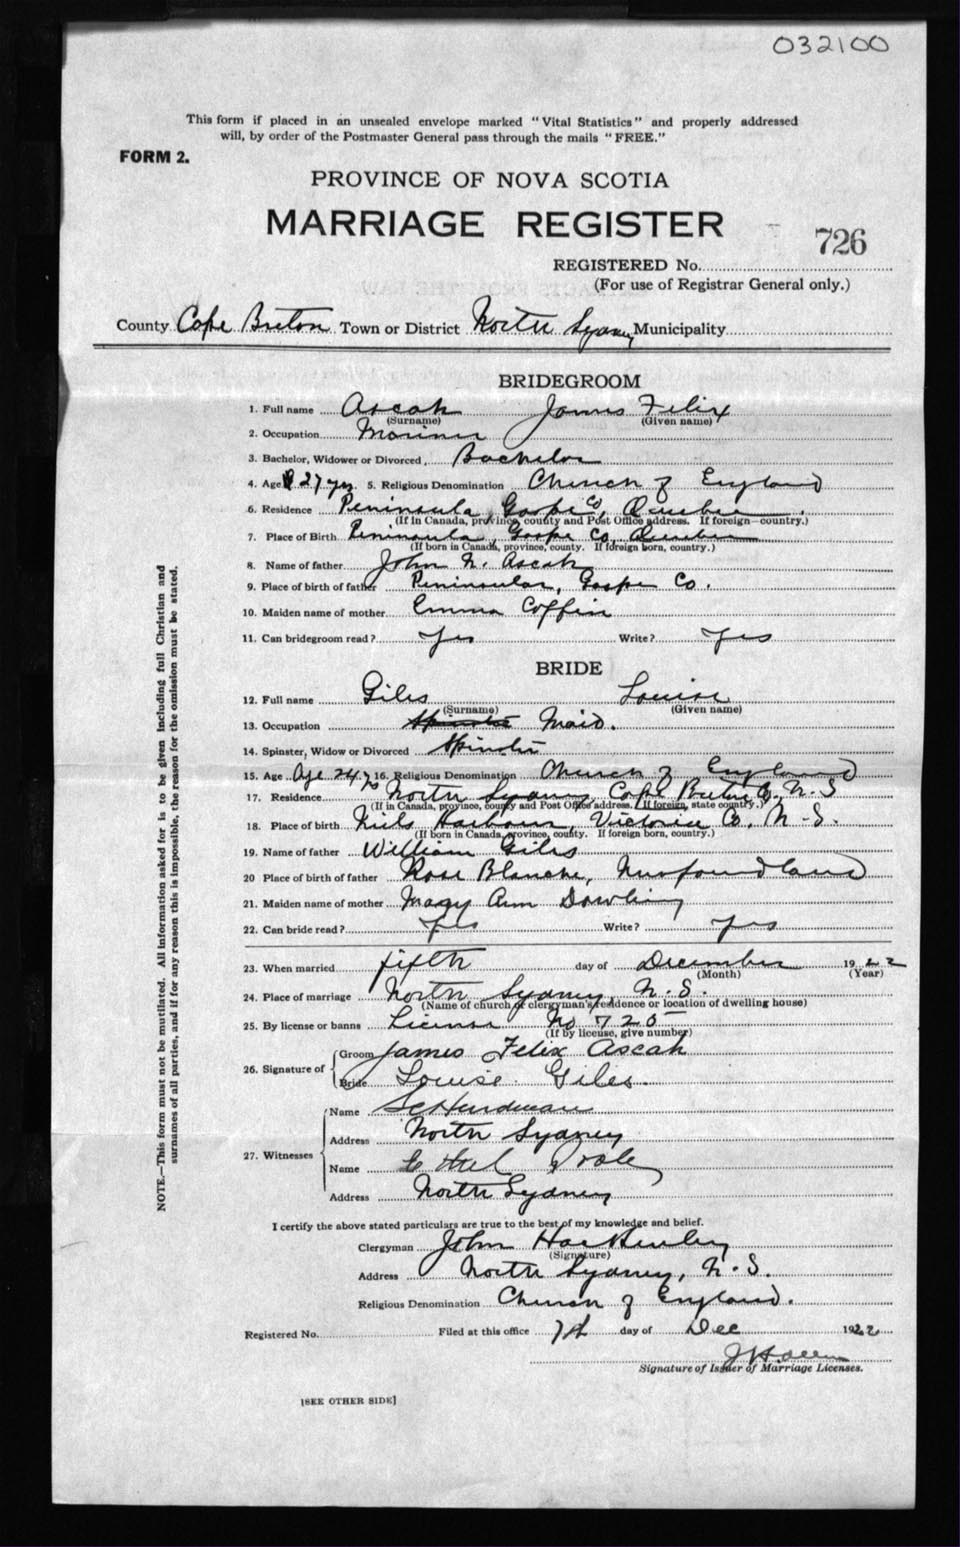 032100
This form if placed in an unsealed envelope marked "Vital Statistics" and properly addressed
will, by order of the Postmaster General pass through the mails "FREE."
FORM 2.
PROVINCE OF NOVA SCOTIA
MARRIAGE REGISTER
726
REGISTERED No.
(For use of Registrar General only.)
County Cape Breton Town or District North Sydney Municipality
BRIDEGROOM
1. Full name Ascah James Felix
(Surname) (Given name)
2. Occupation Mariner
3. Bachelor, Widower or Divorced, Bachelor
4. Age 27 yrs. 5. Religious Denomination Church of England
6. Residence Peninsula, Gaspe Co, Quebec
(If in Canada, province, county and Post Office address. If foreign—country.)
7. Place of Birth Peninsula, Gaspe Co, Quebec
(If born in Canada, province, county. If foreign born, country.)
8. Name of father John N. Ascah
9. Place of birth of father Peninsular, Gaspe Co.
10. Maiden name of mother Emma Coffin
11. Can bridegroom read? Yes Write? Yes
BRIDE
12. Full name Giles Louise
(Surname) (Given name)
13. Occupation Spinster Maid.
14. Spinster, Widow or Divorced Spinster
15. Age Age 24 16. Religious Denomination Church of England
17. Residence North Sydney, Cape Breton Co, N.S
(If in Canada, province, county and Post Office address. If foreign, state country.)
18. Place of birth Niels Harbour, Victoria Co, N.S.
(If born in Canada, province, county. If foreign born, country.)
19. Name of father William Giles
20 Place of birth of father Rose Blanche, Newfoundland
21. Maiden name of mother Mary Ann Dowling
22. Can bride read? Yes Write? Yes
23. When married fifth day of December 1922
(Month) (Year)
24. Place of marriage North Sydney, N.S.
(Name of church, clergyman's residence or location of dwelling house)
25. By license or banns License No 725
(If by license, give number)
26. Signature of
Groom James Felix Ascah
Bride Louise Giles.
27. Witnesses
Name Hardman
Address North Sydney
Name Ethel
Address North Sydney
I certify the above stated particulars are true to the best of my knowledge and belief.
Clergyman John
(Signature)
Address North Sydney, N.S.
Religious Denomination Church of England.
Registered No. Filed at this office 7th day of Dec 1922
Signature of Issuer of Marriage Licenses.
[SEE OTHER SIDE]
NOTE.—This form must not be mutilated. All information asked for is to be given including full Christian and
surnames of all parties, and if for any reason this is impossible, the reason for the omission must be stated.